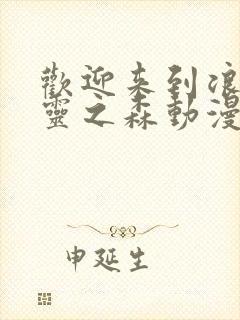 歡迎来到浪
靈之森動漫
申延生